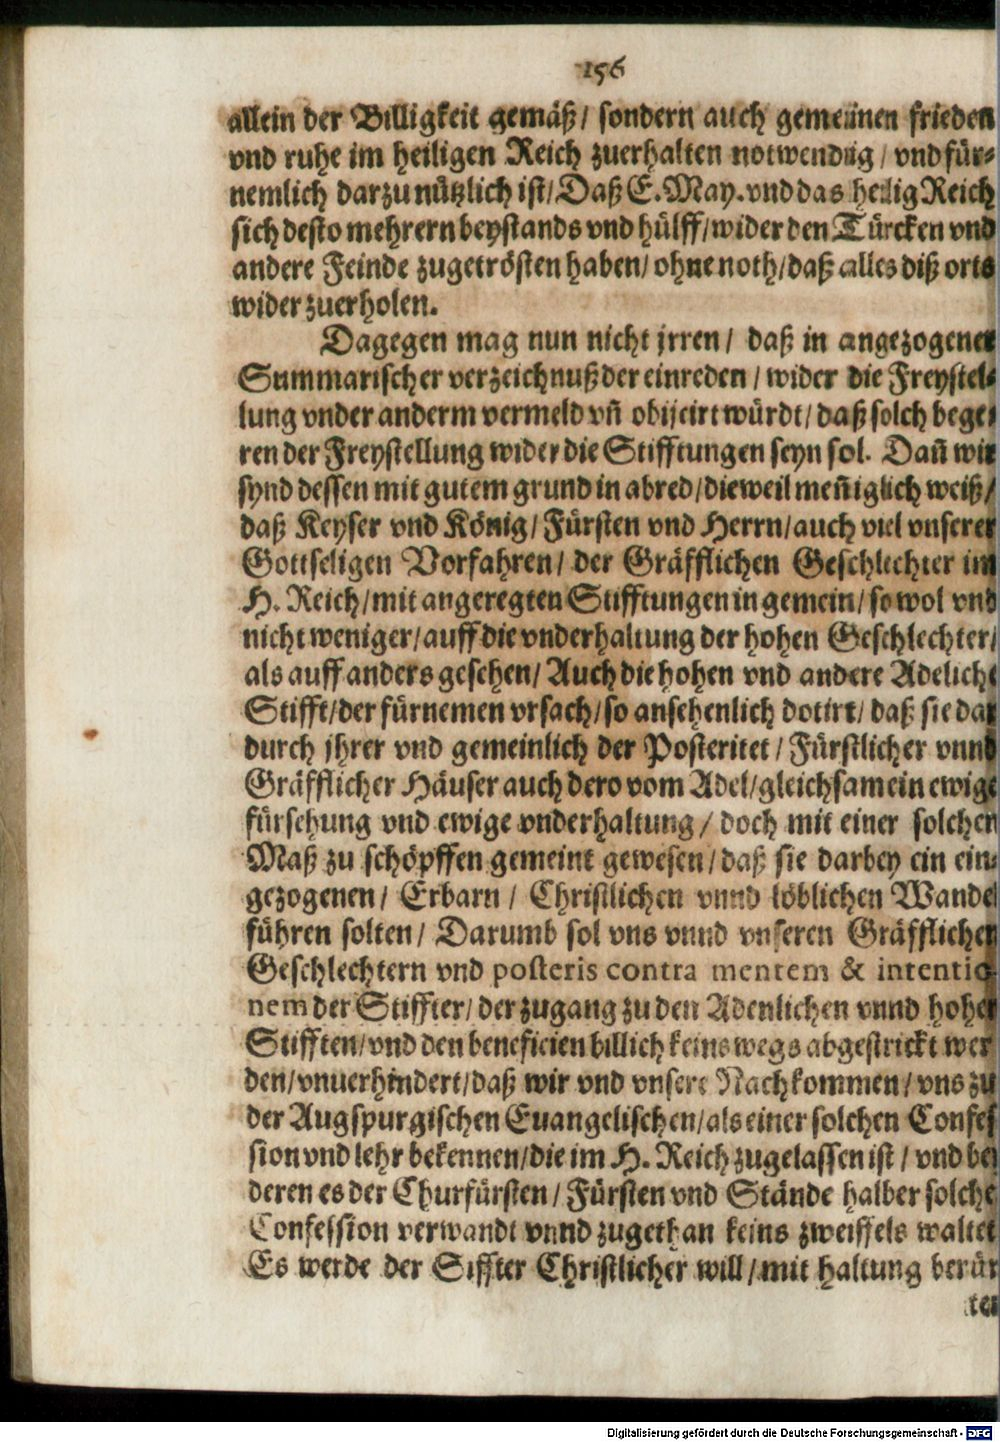 156
allein der Billigkeit gemäß/ sondern auch gemeinen frieden
vnd ruhe im heiligen Reich zuerhalten notwendig/ vnd für-
nemlich darzu nützlich ist/ Daß E. May. vnd das heilig Reich
sich desto mehrern beystands vnd hülff/ wider den Türcken vnd
andere Feinde zugetrösten haben/ ohne noth/ daß alles diß orts
wider zuerholen.
Dagegen mag nun nicht jrren/ daß in angezogener
Summarischer verzeichnuß der einreden/ wider die Freystel-
lung vnder anderm vermeld vñ obijcirt würdt/ daß solch bege-
ren der Freystellung wider die Stifftungen seyn sol. Dañ wir
synd dessen mit gutem grund in abred/ dieweil meñiglich weiß/
daß Keyser vnd König/ Fürsten vnd Herrn/ auch viel vnserer
Gottseligen Vorfahren/ der Gräfflichen Geschlechter im
H. Reich/ mit angeregten Stifftungen in gemein/ so wol vnd
nicht weniger/ auff die vnderhaltung der hohen Geschlechter/
als auff anders gesehen/ Auch die hohen vnd andere Adeliche
Stifft/ der fürnemen vrsach/ so ansehenlich dotirt/ daß sie dar
durch jhrer vnd gemeinlich der Posteritet/ Fürstlicher vnnd
Gräfflicher Häuser auch dero vom Adel/ gleichsam ein ewige
fürsehung vnd ewige vnderhaltung/ doch mit einer solchen
Maß zu schöpffen gemeint gewesen/ daß sie darbey ein ein-
gezogenen/ Erbarn/ Christlichen vnnd löblichen Wandel
führen solten/ Darumb sol vns vnnd vnseren Gräfflichen
Geschlechtern vnd posteris contra mentem & intentio-
nem der Stiffter/ der zugang zu den Adenlichen vnnd hohen
Stifften/ vnd den beneficien billich keins wegs abgestrickt wer
den/ vnuerhindert/ daß wir vnd vnsere Nachkommen/ vns zu
der Augspurgischen Euangelischen/ als einer solchen Confes
sion vnd lehr bekennen/ die im H. Reich zugelassen ist/ vnd bei
deren es der Churfürsten/ Fürsten vnd Stände halber solche
Confession verwandt vnnd zugethan keins zweiffels waltet
Es werde der Siffter Christlicher will/ mit haltung berür
ter
Digitalisierung gefördert durch die Deutsche Forschungsgemeinschaft - DFG